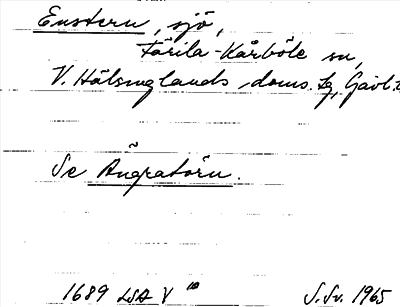 Enstern, sjö,
Färila-Kårböle sn,
V. Hälsinglands doms. tg, Gävl.
Se Ängratörn.
1689 LSA V 10 S. Sv. 1965